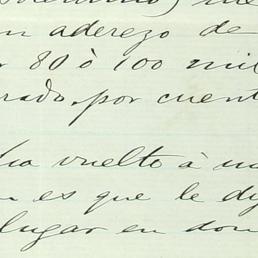 n aderezo de
80 ò 100 mil
rado, por cuent
ha vuelto à
n es que le
lugar en don